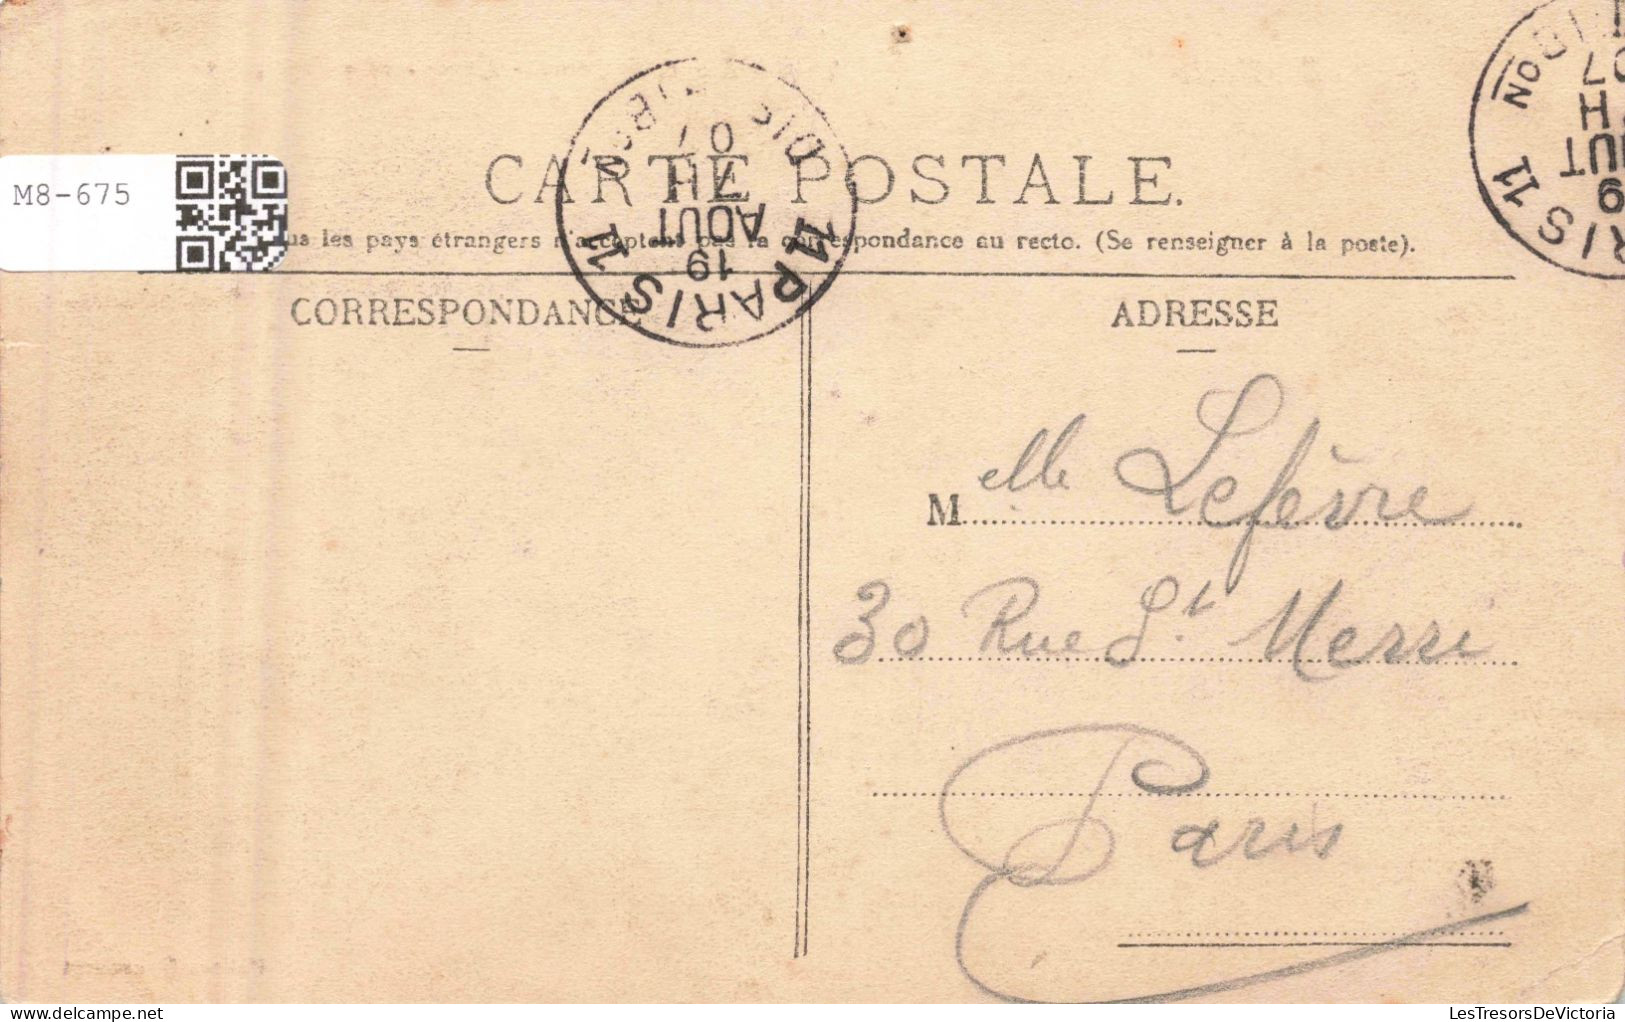 M8-675
CARTE POSTALE.
us les pays étrangers n'acceptent pas la correspondance au recto. (Se renseigner à la poste).
CORRESPONDANCE
ADRESSE
Melle Lefèvre
30 Rue St. Merri
Paris
PARIS 11
19
AOUT
7H
07
DISTRIBON
PARIS 11
19
AOUT
LesTresorsDeVictoria